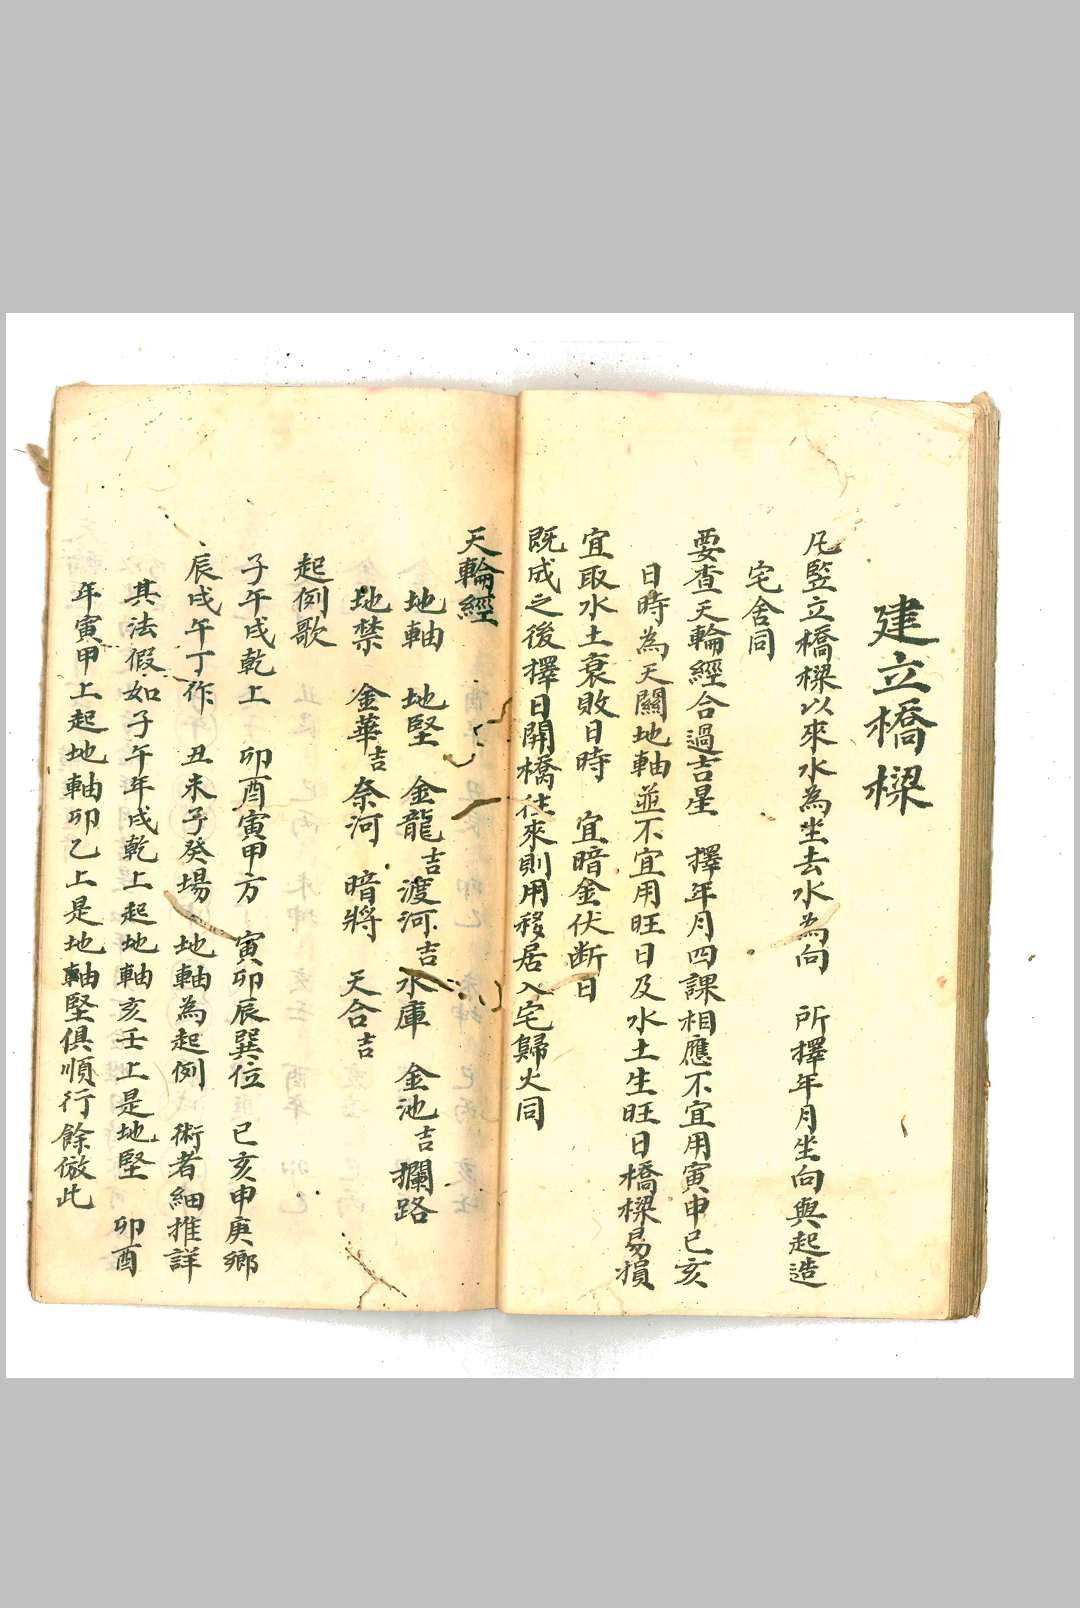 建立橋樑
凡竪立橋樑以來水為坐去水為向　所擇年月坐向與起造
宅舍同
要查天輪經合過吉星　擇年月四課相應不宜用寅申巳亥
日時為天關地軸並不宜用旺日及水土生旺日橋樑易損
宜取水土衰敗日時　宜暗金伏断日
既成之後擇日開橋往來則用移居入宅歸火同
天輪經
地軸　地堅　金龍吉　渡河吉　水庫　金池吉　攔路
地禁　金華吉　奈河　暗將　天合吉
起例歌
子午戌乾上　卯酉寅甲方　寅卯辰巽位　巳亥申庚鄉
辰戌午丁作　丑未子癸場　地軸為起例　術者細推詳
其法假如子午年戌乾上起地軸亥壬上是地堅　卯酉
年寅甲上起地軸卯乙上是地軸堅俱順行餘倣此